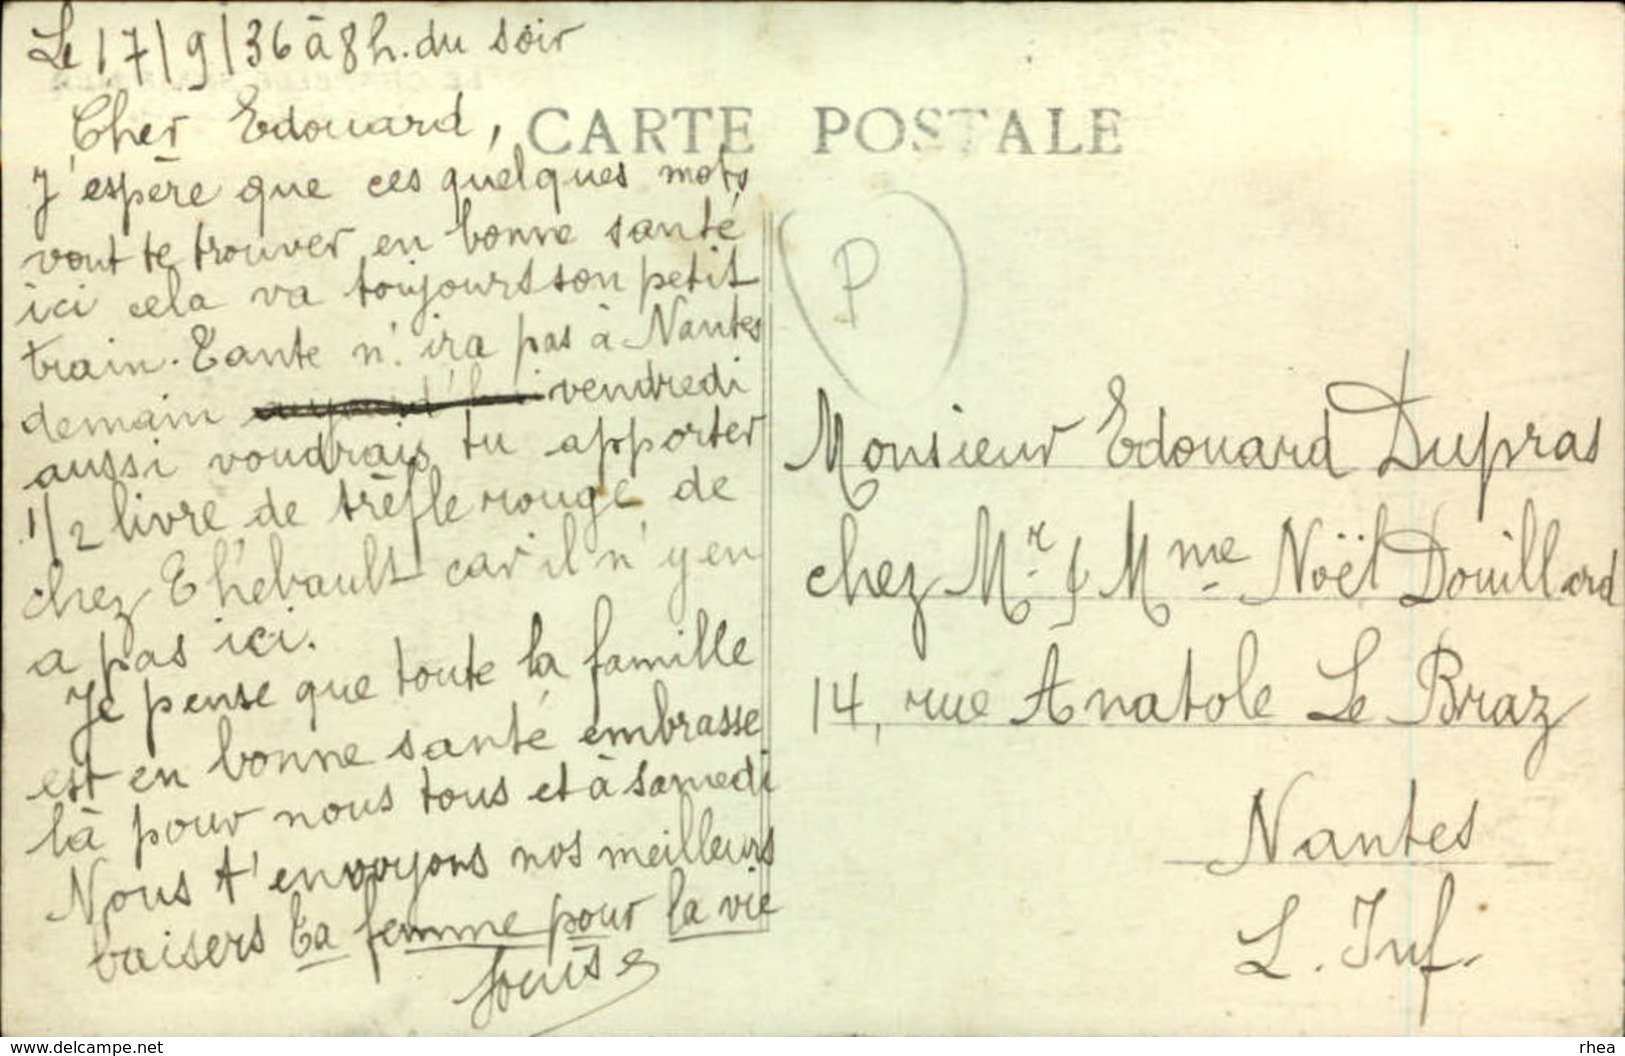 Le 17/9/36 à 8h. du soir
Cher Edouard,
CARTE POSTALE
J'espère que ces quelques mots
vont te trouver en bonne santé
ici cela va toujours son petit
train. Tante n'ira pas à Nantes
demain vendredi
aussi voudrais tu apporter
1/2 livre de trèfle rouge de
chez Thébault car il n'y en
a pas ici.
Je pense que toute la famille
est en bonne santé embrasse
là pour nous tous et à samedi
Nous t'envoyons nos meilleurs
baisers ta femme pour la vie
Louise
P
Monsieur Edouard Dupras
chez Mr & Mme Noël Douillard
14, rue Anatole Le Braz
Nantes
L. Inf.
www.delcampe.net
rhea